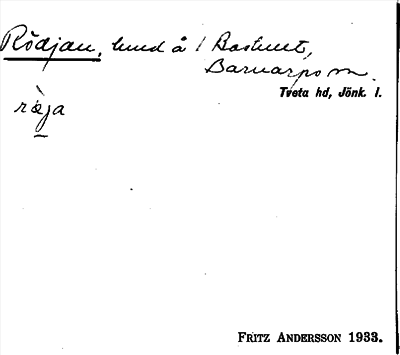 Rödjan, lund å 1 Bostret,
Barnarps sn.
Tveta hd, Jönk. l.
ràja
FRITZ ANDERSSON 1933.